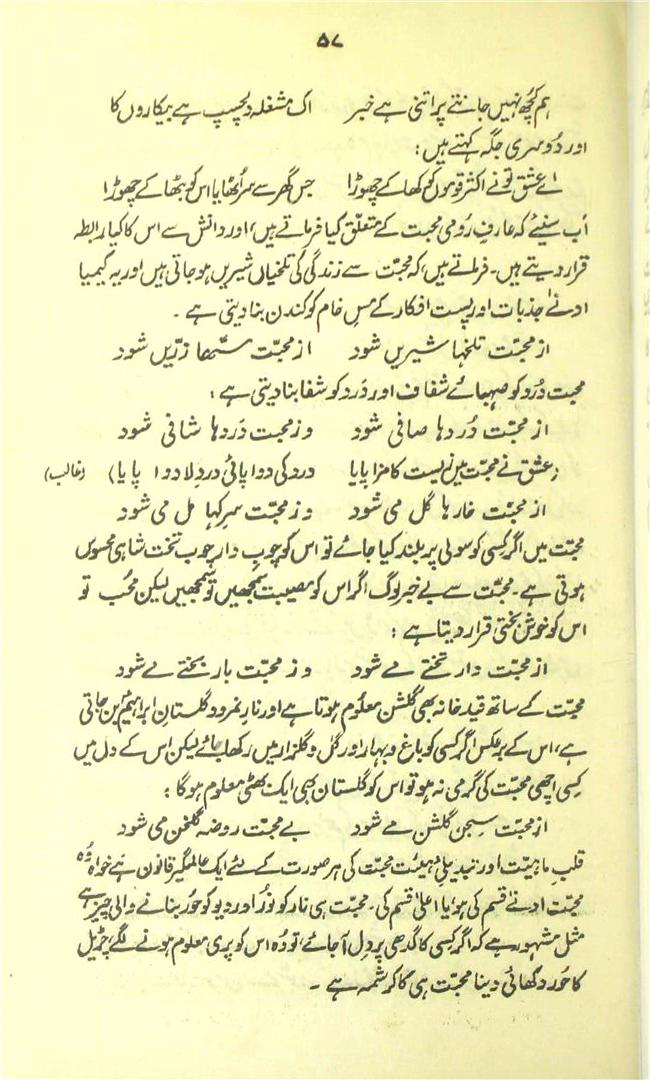 ۵۷
ہم کچھ نہیں جانتے پر اتنی ہے خبر اک مشغلہ دلچسپ ہے بیکاروں کا
اور دوسری جگہ کہتے ہیں:
اے عشق تو نے اکثر قوموں کو کھا کے چھوڑا جس گھر سے سر اٹھایا اس کو بٹھا کے چھوڑا
اب سنیئے کہ عارفِ رومی محبت کے متعلق کیا فرماتے ہیں، اور دانش سے اس کا کیا رابطہ
قرار دیتے ہیں۔ فرماتے ہیں، کہ محبّت سے زندگی کی تلخیاں شیریں ہو جاتی ہیں اور یہ کیمیا
ادنےٰ جذبات اور پست افکار کے مسِ خام کو کندن بنا دیتی ہے۔
از محبّت تلخہا شیریں شود از محبّت مسّہا زرّیں شود
محبت دُرد کو صہبائے شفاف اور دَرد کو شفا بنا دیتی ہے:
از محبّت دُردہا صافی شود وز محبت دَردہا شافی شود
(عشق نے محبّت میں زیست کا مزا پایا درد کی دوا پائی دردِ لا دوا پایا) (غالب)
از محبّت خارہا گل می شود وز محبّت سرکہا مل می شود
محبّت میں اگر کسی کو سولی پر بلند کیا جائے تو اس کو چوبِ دار چوبِ تخت شاہی محسوس
ہوتی ہے۔ محبّت سے بے خبر لوگ اگر اس کو مصیبت سمجھیں تو سمجھیں لیکن محُب تو
اس کو خوش بختی قرار دیتا ہے:
از محبّت دار تختے مے شود وز محبّت بار بختے مے شود
محبّت کے ساتھ قید خانہ بھی گلشن معلوم ہوتا ہے اور نارِ نمرود گلستانِ ابراہیمؑ بن جاتی
ہے، اس کے برعکس اگر کسی کو باغ و بہار اور گل و گلزار میں رکھا جائے لیکن اس کے دل میں
کسی اچھی محبّت کی گرمی نہ ہو تو اس کو گلستان بھی ایک بھٹی معلوم ہوگا:
از محبّت سجن گلشن مے شود بے محبّت روضہ گلخن می شود
قلبِ ماہیّت اور تبدیلِ ہیئت محبّت کی ہر صورت کے لئے ایک عالمگیر قانون ہے خواہ وُہ
محبّت ادنےٰ قسم کی ہو، یا اعلیٰ قسم کی۔ محبّت ہی نار کو نُور اور دیو کو حُور بنانے والی چیز ہے
مثل مشہور ہے کہ اگر کسی کا گدھی پر دِل آ جائے، تو وُہ اس کو پری معلوم ہونے لگے، چڑیل
کا حُور دکھائی دینا محبّت ہی کا کرشمہ ہے۔